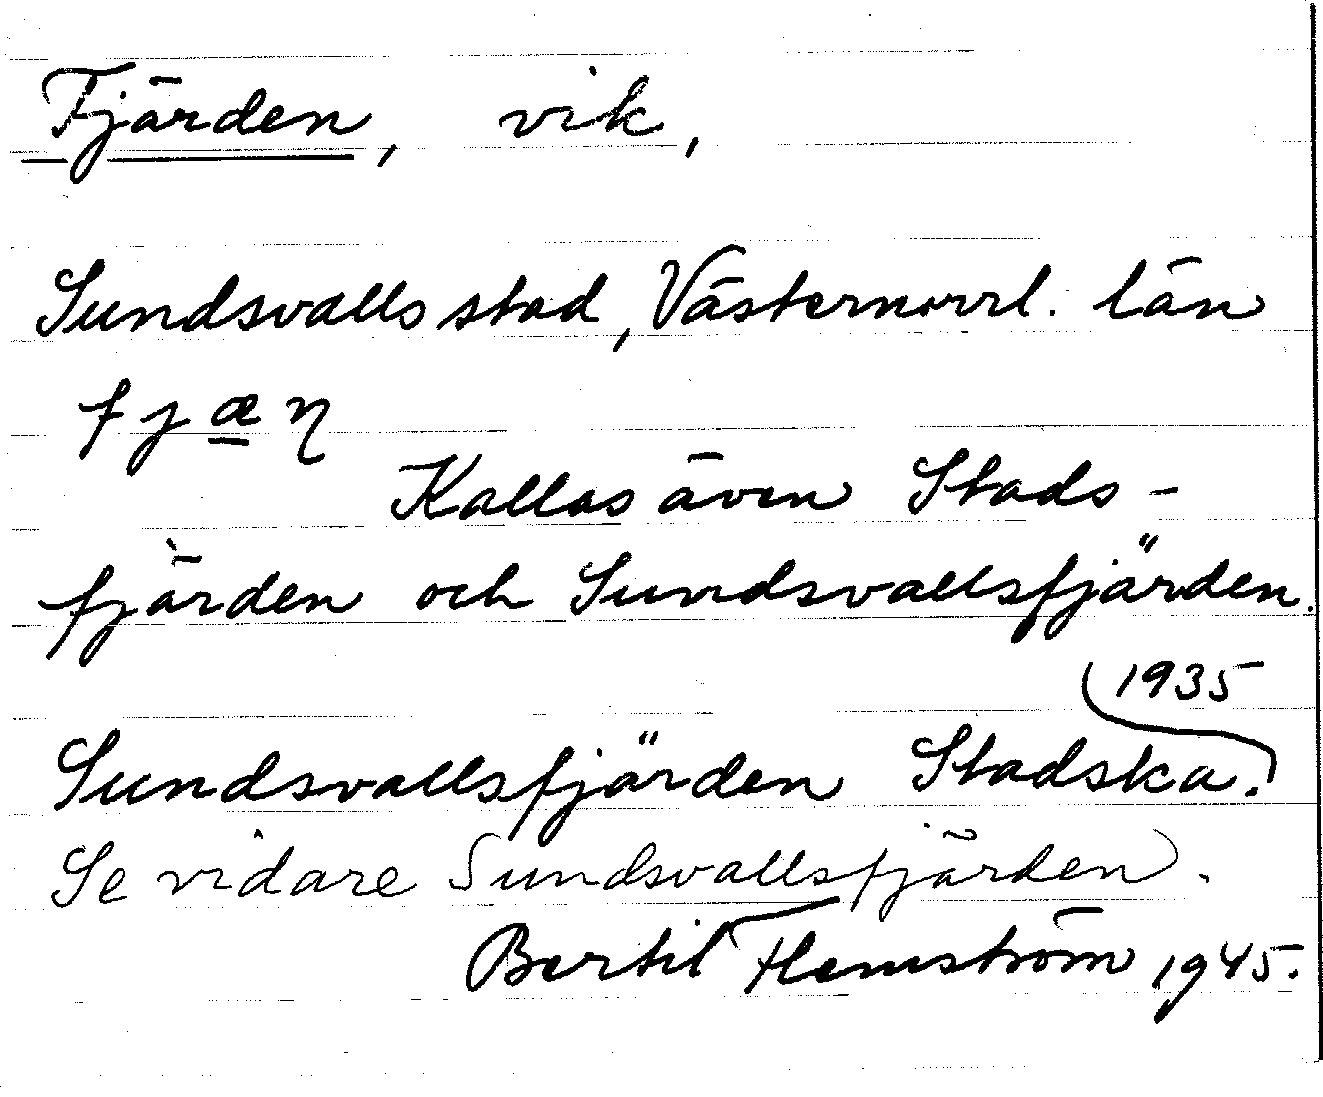 Fjärden, vik,
Sundsvalls stad, Västernorrl. län
fjæŋ
Kallas även Stads-
fjärden och Sundsvallsfjärden.
1935
Sundsvallsfjärden Stadska.
Se vidare Sundsvallsfjärden.
Bertil Flemström 1945.